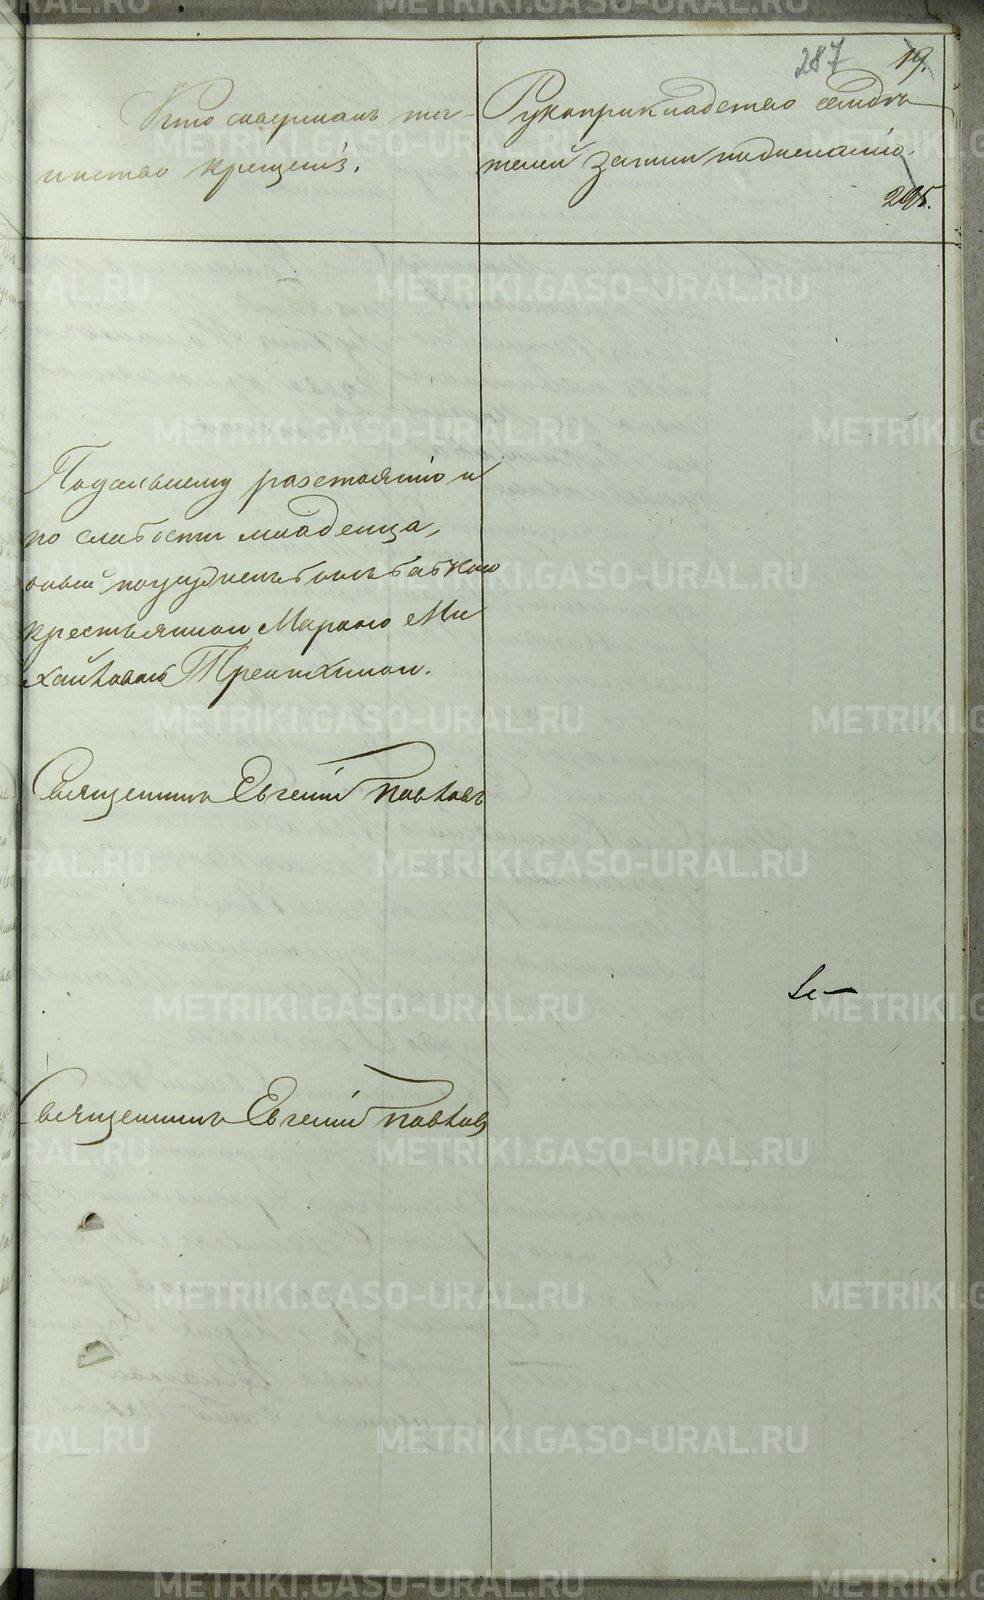 287 19.
Кто совершалъ та-
инство крещенія.
Рукоприкладство свидѣ-
телей записи по желанію.
295.
Подальнему разстоянію и
по слабости младенца,
оный погруженъ былъ бабкою
крестьянкой Марѳою Ми
хайловой
Священникъ Евгеній Поповъ
Священникъ Евгеній Поповъ
METRIKI.GASO-URAL.RU